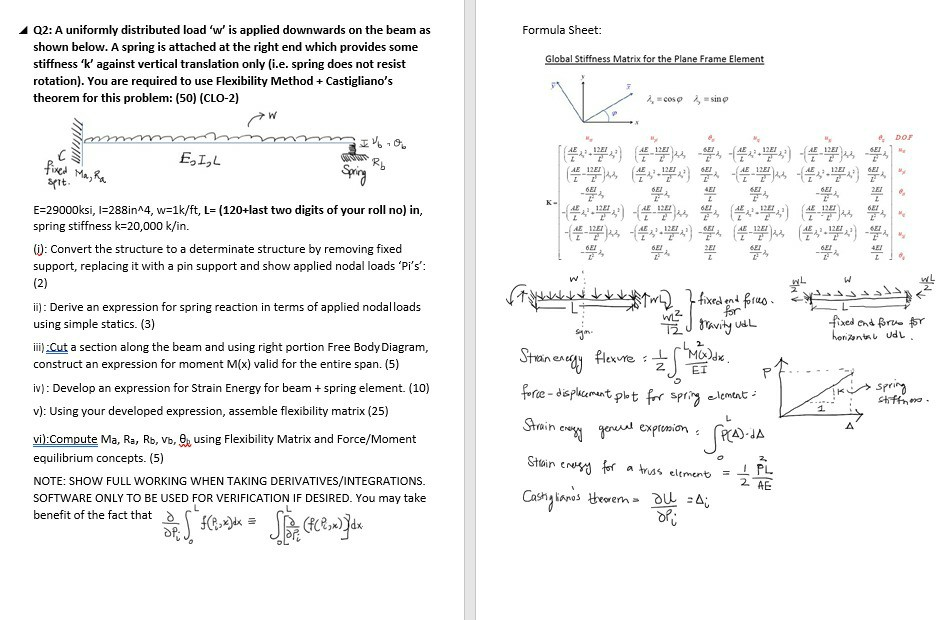 Q2: A uniformly distributed load ‘w’ is applied downwards on the beam as
shown below. A spring is attached at the right end which provides some
stiffness ‘k’ against vertical translation only (i.e. spring does not resist
rotation). You are required to use Flexibility Method + Castigliano’s
theorem for this problem: (50) (CLO-2)
W
C
E, I, L
Vb, θb
fixed Ma, Ra
Spring Rb
E=29000ksi, I=288in^4, w=1k/ft, L= (120+last two digits of your roll no) in,
spring stiffness k=20,000 k/in.
(i): Convert the structure to a determinate structure by removing fixed
support, replacing it with a pin support and show applied nodal loads ‘Pi’s’:
(2)
ii): Derive an expression for spring reaction in terms of applied nodal loads
using simple statics. (3)
iii) :Cut a section along the beam and using right portion Free Body Diagram,
construct an expression for moment M(x) valid for the entire span. (5)
iv): Develop an expression for Strain Energy for beam + spring element. (10)
v): Using your developed expression, assemble flexibility matrix (25)
vi):Compute Ma, Ra, Rb, vb, θb using Flexibility Matrix and Force/Moment
equilibrium concepts. (5)
NOTE: SHOW FULL WORKING WHEN TAKING DERIVATIVES/INTEGRATIONS.
SOFTWARE ONLY TO BE USED FOR VERIFICATION IF DESIRED. You may take
benefit of the fact that ∂/∂Pi ∫₀ᴸ f(Pi,x)dx ≡ ∫₀ᴸ [∂/∂Pi (f(Pi,x)]dx
Formula Sheet:
Global Stiffness Matrix for the Plane Frame Element
λx = cosφ λy = sinφ
DOF
K =
W
wL
wL²/12
sym.
L
fixed end forces
for
gravity udL
wL/2 W wL/2
L
fixed end forces for
horizontal udL.
Strain energy flexure : 1/2 ∫₀ᴸ M(x)²dx / EI
force-displacement plot for spring element :
P
K
1
Δ
spring
stiffness.
Strain energy general expression : ∫₀ᴸ P(Δ)·dΔ
Strain energy for a truss element = 1/2 P²L/AE
Castiglianos theorem = ∂U/∂Pi = Δi